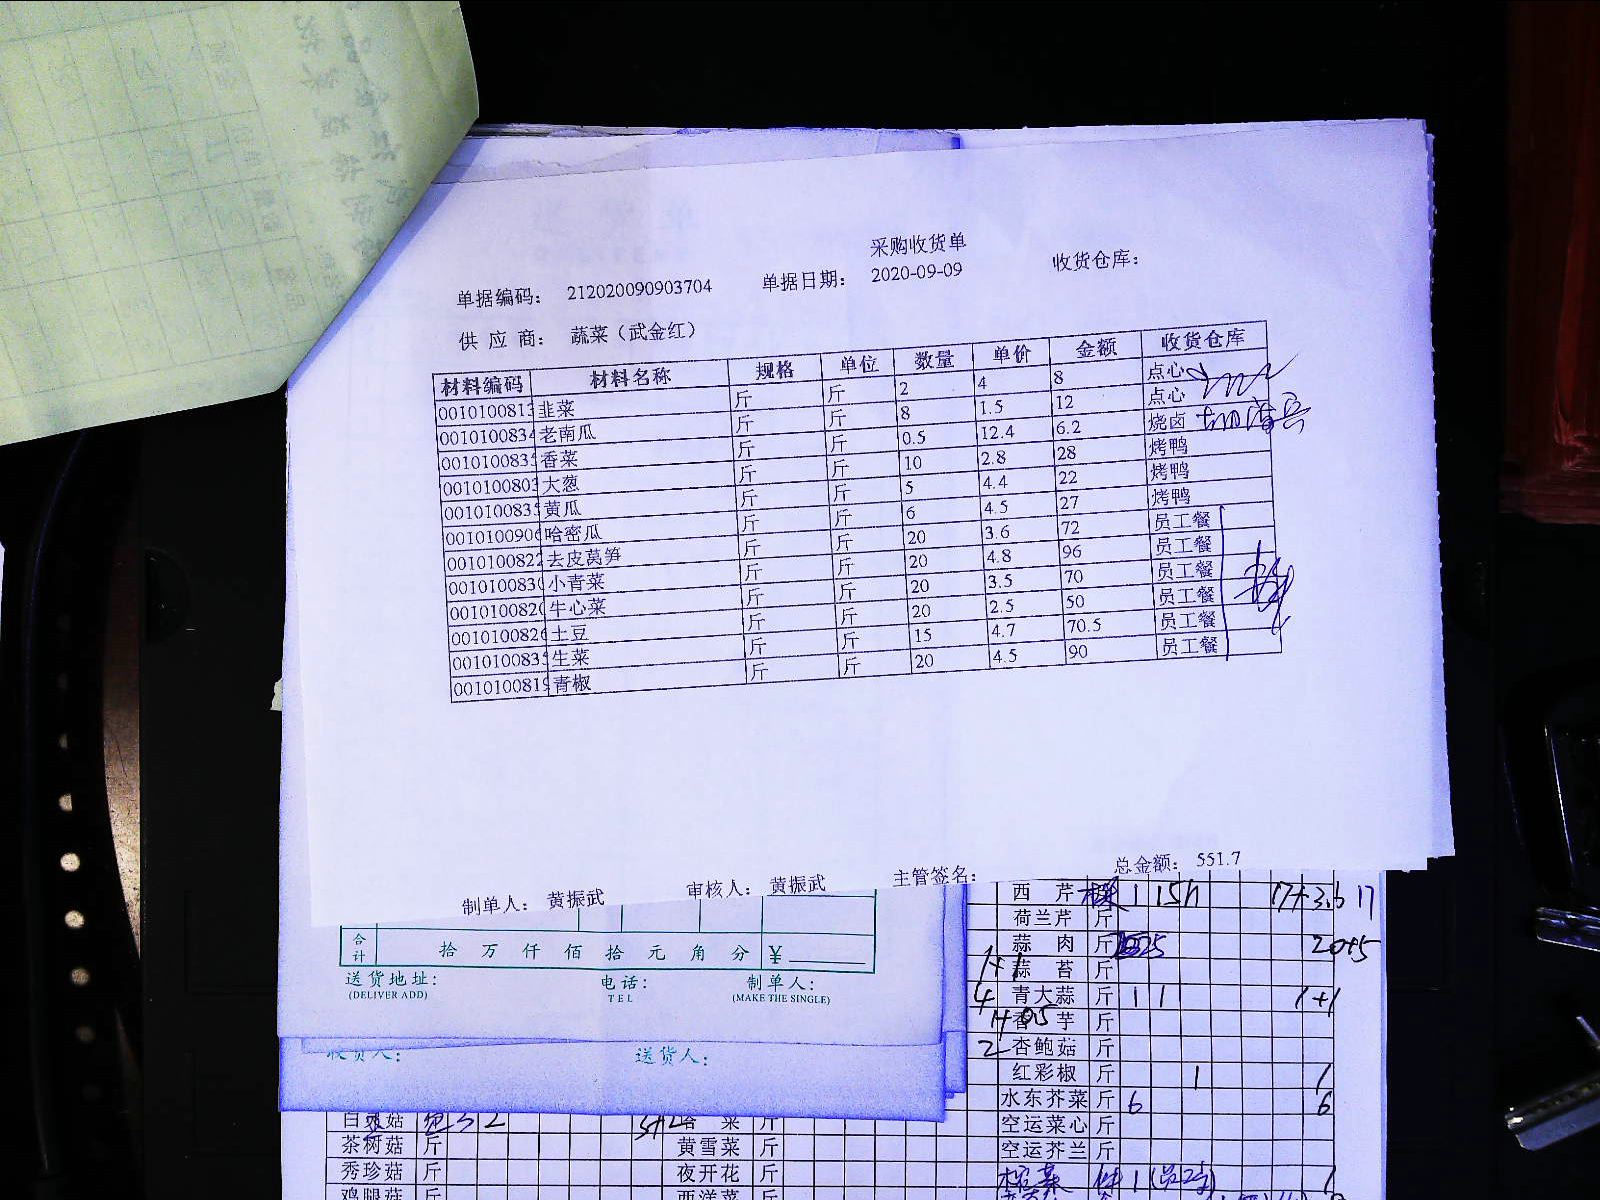 采购收货单
单据编码： 212020090903704 单据日期： 2020-09-09 收货仓库：
供 应 商： 蔬菜（武金红）
材料编码 材料名称 规格 单位 数量 单价 金额 收货仓库
001010081 韭菜 斤 斤 2 4 8 点心
0010100834 老南瓜 斤 斤 8 1.5 12 点心
001010083 香菜 斤 斤 0.5 12.4 6.2 烧卤
001010080 大葱 斤 斤 10 2.8 28 烤鸭
001010083 黄瓜 斤 斤 5 4.4 22 烤鸭
001010090 哈密瓜 斤 斤 6 4.5 27 烤鸭
001010082 去皮莴笋 斤 斤 20 3.6 72 员工餐
001010083 小青菜 斤 斤 20 4.8 96 员工餐
001010082 牛心菜 斤 斤 20 3.5 70 员工餐
001010082 土豆 斤 斤 20 2.5 50 员工餐
001010083 生菜 斤 斤 15 4.7 70.5 员工餐
001010081 青椒 斤 斤 20 4.5 90 员工餐
制单人： 黄振武 审核人： 黄振武 主管签名： 总金额： 551.7
合计 拾 万 仟 佰 拾 元 角 分 ¥
送货地址： 电话： 制单人：
(DELIVER ADD) TEL (MAKE THE SINGLE)
收货人： 送货人：
西 芹 1 17+3.6 17
荷兰芹 斤
蒜 肉 斤 20+5
蒜 苔 斤
4 青大蒜 斤 1 1 1+1
香 芋 斤
2 杏鲍菇 斤
红彩椒 斤 1 1
水东芥菜 斤 6 6
空运菜心 斤
空运芥兰 斤
菇 菜 斤
茶树菇 斤 黄雪菜 斤
秀珍菇 斤 夜开花 斤
鸡腿菇 斤 西洋菜 斤